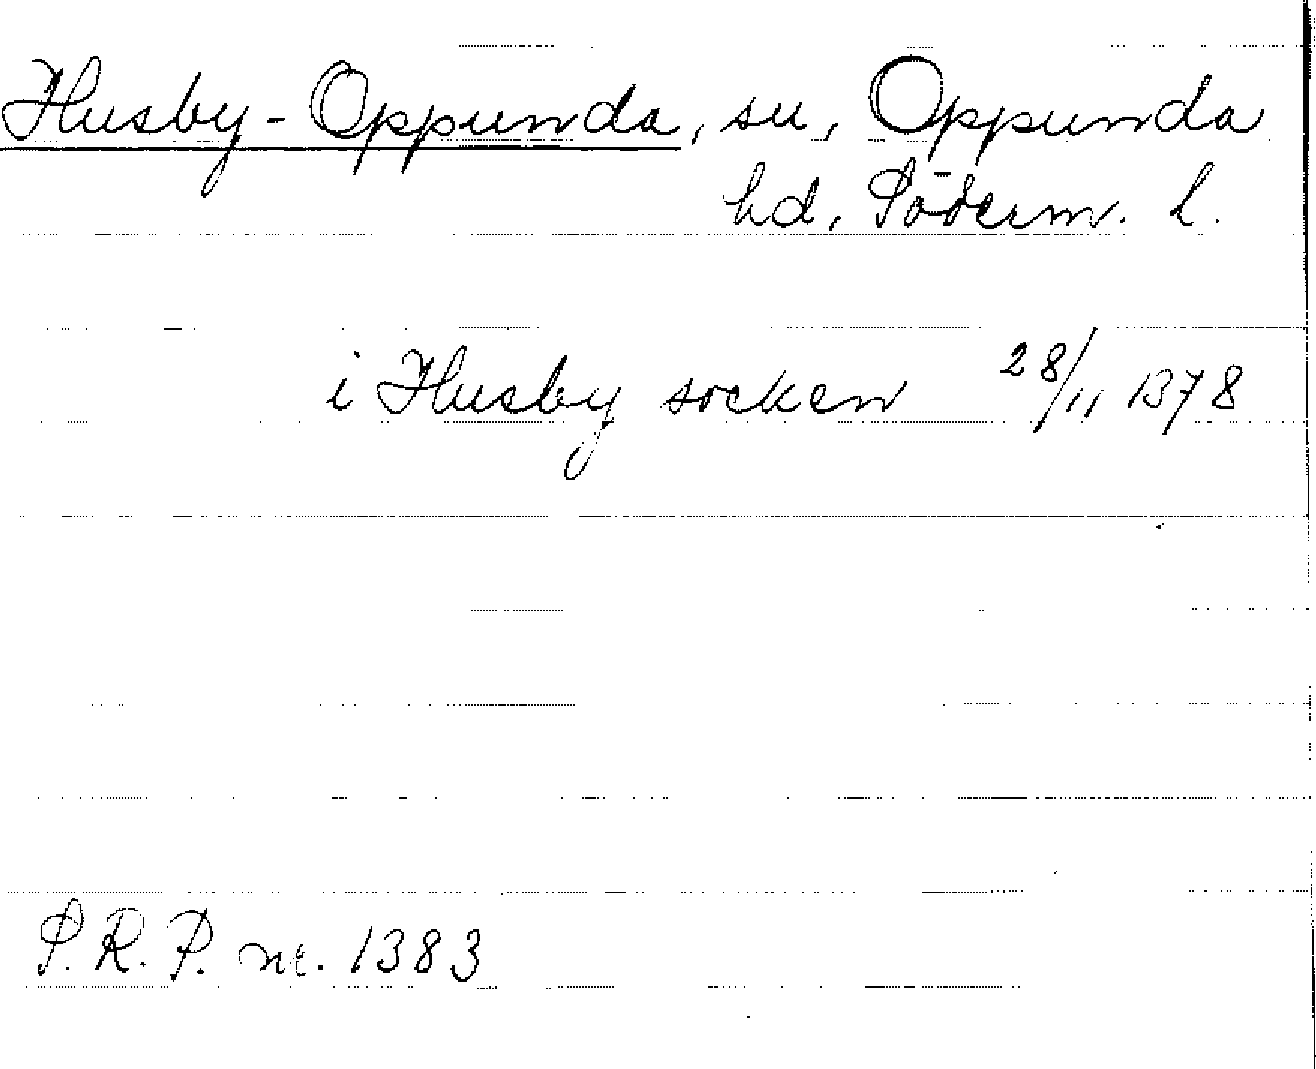 Husby-Oppunda, sn, Oppunda
hd, Söderm. l.
i Husby socken 28/11 1378
S.R.P. nr. 1383